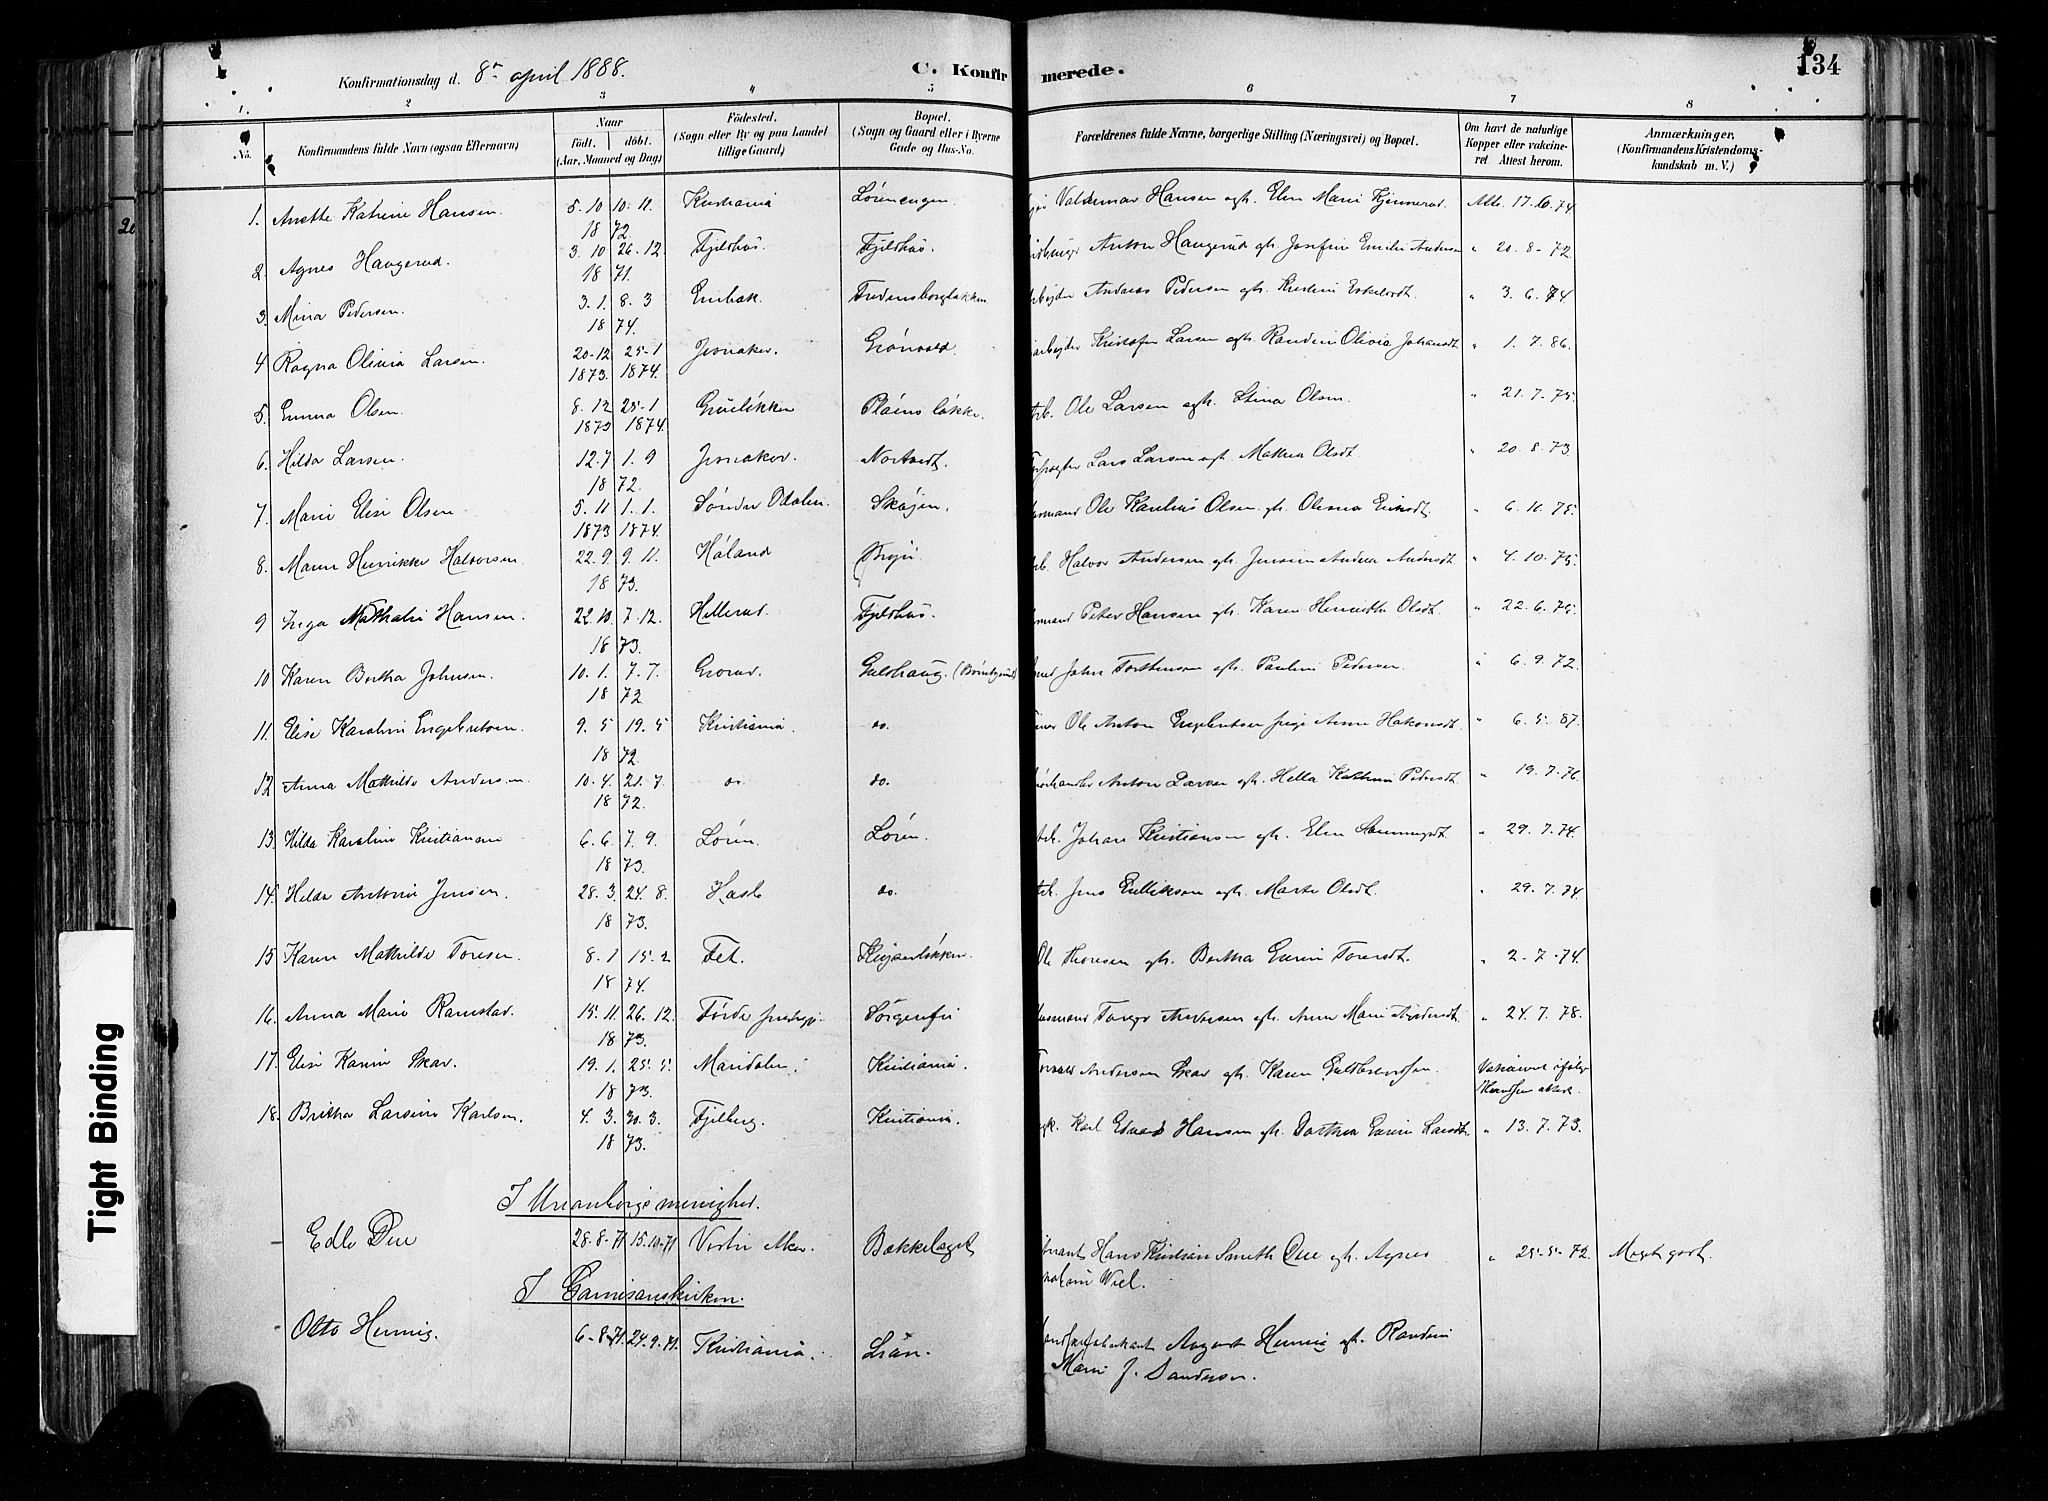 Konfirmationsdag d. 8n april 1888.
C. Konfirmerede.
134
1 2 3 4 5 6 7 8
No. Konfirmandens fulde Navn (ogsaa Efternavn) Naar födt. döbt. (Aar, Maaned og Dag) Födested. (Sogn eller By og paa Landet tillige Gaard) Bopæl. (Sogn og Gaard eller i Byerne Gade og Hus-No. Forældrenes fulde Navne, borgerlige Stilling (Næringsvei) og Bopæl. Om havt de naturlige Kopper eller vakcineret Attest herom. Anmærkninger, (Konfirmandens Kristendomskundskab m. V.)
1. Anette Katrine Hansen 5. 10 10. 11. Kristiania Lörenengen Valdemar Hansen ogh. Elen Marie 17. 6. 74
18 72.
2 Agnes Haugerud. 3. 10 26. 12. Fjeldhus. Fjeldhus. Anton Haugerud gh. Josefine Emilie Andersen " 20. 8 - 72.
18 71.
3. Mina Pedersen. 3. 1. 8. 3 Enebak. Fredensborgløkken Andreas Pedersen gh. Kristine " 3. 6. 74.
18 74.
4 Ragna Olivia Larsen. 20-12 25-1 Jevnaker. Grönvold. arbejder Kristofer Larsen ogh. Randine Olivia Johansdt " 1. 7. 86.
1873. 1874.
5. Emma Olsen. 8. 12 25-1 Grüeløkken Pløens løkke. Arb. Ole Larsen ogh. Stina Olsen " 21. 7. 75.
1873 1874.
6. Hilda Larsen. 12. 7 1. 9 Jevnaker. Nortvedt. Lars Larsen ogh. Mathea Olsdt. " 20. 8. 73
18 72.
7. Marie Elise Olsen 5. 11 1. 1. Söndre Odalen. Skøjen. Ole Karelius Olsen gh. Oleana Eriksdt. " 6. 11. 75.
1873 1874.
8. Maren Henrikke Halvorsen 22. 9 9. 11. Höland Bryn Arb. Halvor Andersen gh. Jensine Andrea Andersdt " 4. 10. 75.
18 73.
9 Inga Mathalie Hansen. 22. 10. 7. 12. Hillerud. Fjeldhus. Peter Hansen gh. Karen Henriette Olsdt. " 22. 6. 75.
18 73.
10 Karen Bertha Johnsen. 10. 1. 7. 7. Grorud. Gulshaug. John Torstensen gh. Pauline Pedersen. " 6. 9. 72.
18 72
11. Elise Karoline Engebretsen. 9. 5 19. 5 Kristiania do. Ole Anton Engebretsen pige Anne Hakonsdt. " 6. 5. 87.
18 72.
12 Anna Mathilde Andersen 10. 4. 21. 7. do do. Anton Larsen gh. Hella Kathrine Pedersdt. " 19. 7. 76
18 72.
13. Hilda Karoline Kristiansen 6. 6. 7. 9. Lören. Lören. Arb. Johan Kristiansen gh. Elen " 29. 7. 74.
18 73.
14. Hilda Antonie Jensen. 28. 3. 24. 8. Hasle do. Arb. Jens Gulliksen ogh. Marte Olsdt. " 29. 7. 74
18 73.
15 Karen Mathilde Toresen 8. 1 15. 2 Fet. Keyserløkken. Ole Thoresen gh. Bertha Toresdt. " 2. 7. 74.
18 74.
16. Anna Marie Ramstad. 15. 11. 26. 12. Förde Sorgenfri Husmand Andersen gh. Anne Marie " 24. 7. 78.
18 73.
17. Elise Karine Skar. 19. 1. 25. 5. Maridalen. Kristiania. Andersen Skar gh. Karen Vakcineret ifølge
18 73. attest
18. Britha Larsine Karlsen. 4. 3. 30. 3. Fjelberg. Kristiania. Karl Edvard Hansen gh. Dorthea Larsdt. " 13. 7. 73.
18 73.
I Uranienborgs menighed.
Edle Due 28. 8. 71 15. 10. 71 Vestre Aker. Bækkelaget Hans Kristian Smeth Due gh. Agnes " 25. 5. 72. Meget godt.
Wiel.
I Garnisonskirken.
Otto Hennig. 6-8-71. 24. 9. 71. Kristiania. Lian. August Hennig gh. Randine
Marie J. Sandersen.
Tight Binding